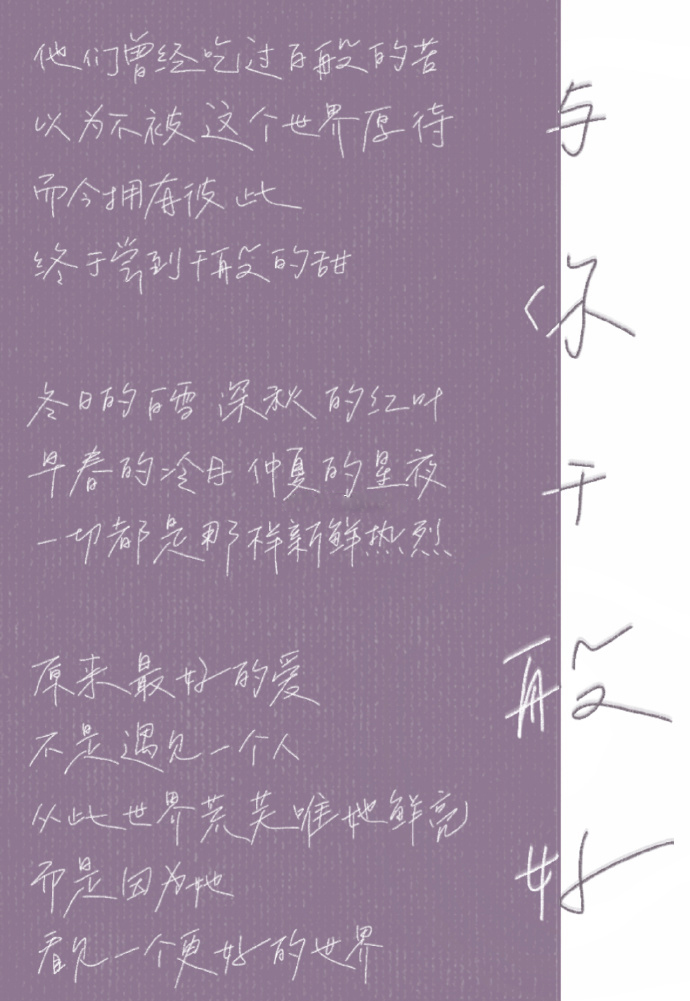 他们曾经吃过百般的苦
以为不被这个世界厚待
而今拥有彼此
终于尝到千般的甜
冬日的白雪 深秋的红叶
早春的冷月 仲夏的星夜
一切都是那样新鲜热烈
原来最好的爱
不是遇见一个人
从此世界荒芜唯她鲜亮
而是因为她
看见一个更好的世界
与你千般好